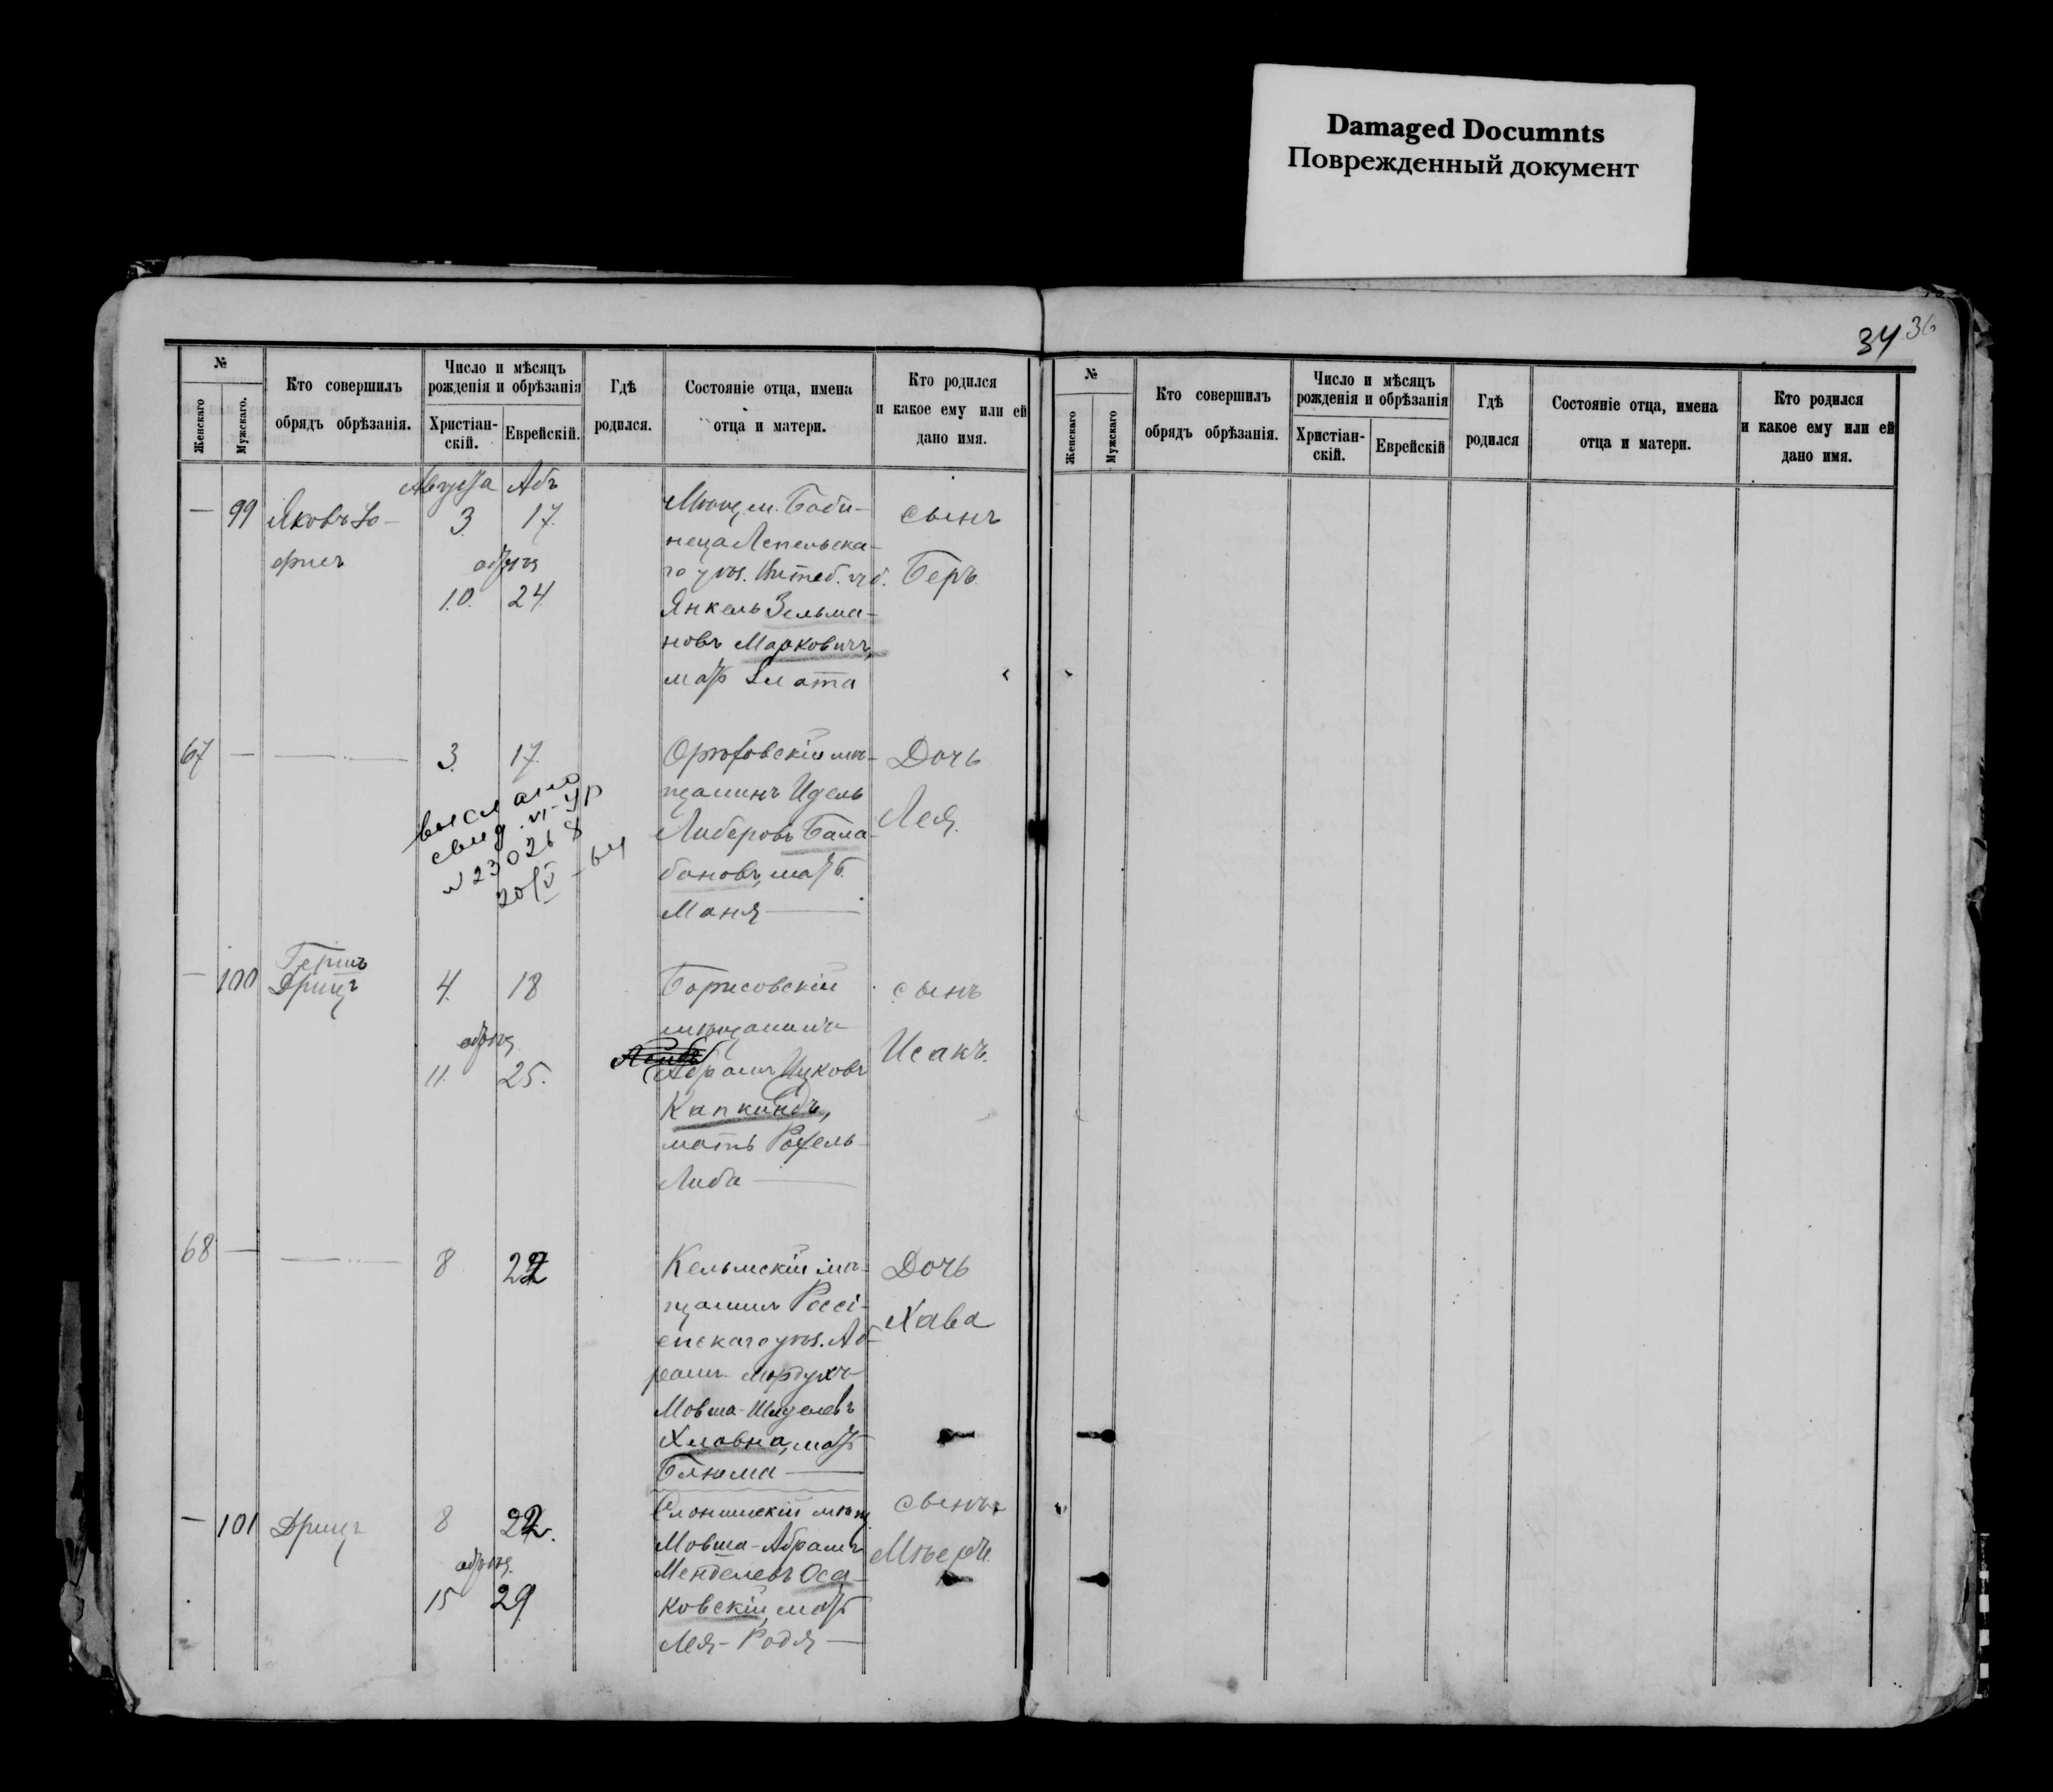 Damaged Documnts
Поврежденный документ
34 36
№
Женскаго
Мужскаго.
Кто совершилъ
обрядъ обрѣзанія.
Число и мѣсяцъ
рожденія и обрѣзанія
Христіан-
скій.
Еврейскій.
Гдѣ
родился.
Состояніе отца, имена
отца и матери.
Кто родился
и какое ему или ей
дано имя.
Августа Абъ
— 99 Яковъ
3. 17.
обрѣз
10. 24.
Мѣщ. м. Боби-
неца Лепельска-
го уѣз. Витеб. губ.
Янкель Зельма-
новъ Марковичъ,
мать Злата
сынъ
Беръ.
67 —
3. 17.
выслано
свид.
№ 230268
20/V – 64
мѣ-
щанинъ Идель
Либеровъ Бала-
бановъ, мать
Маня —
Дочь
Лея.
— 100 Гершъ
Дрицъ
4. 18
обрѣз
11. 25.
Борисовскій
мѣщанинъ
Абрамъ Ицковъ
Капкиндъ,
мать Рохель-
Либа —
сынъ
Исакъ.
68 —
8 22
Кельмскій мѣ-
щанинъ Россі-
енскаго уѣз. Аб-
рамъ Мордухъ-
Мовша-
Хлавна, мать
Блюма —
Дочь
Хава
— 101 Дрицъ
8 22.
обрѣз.
15 29
Слонимскій мѣщ.
Мовша-Абрамъ
Менделевъ Оса-
ковскій, мать
Лея-Родя —
сынъ
Мѣеръ.
№
Женскаго
Мужскаго
Кто совершилъ
обрядъ обрѣзанія.
Число и мѣсяцъ
рожденія и обрѣзанія
Христіан-
скій.
Еврейскій
Гдѣ
родился
Состояніе отца, имена
отца и матери.
Кто родился
и какое ему или ей
дано имя.